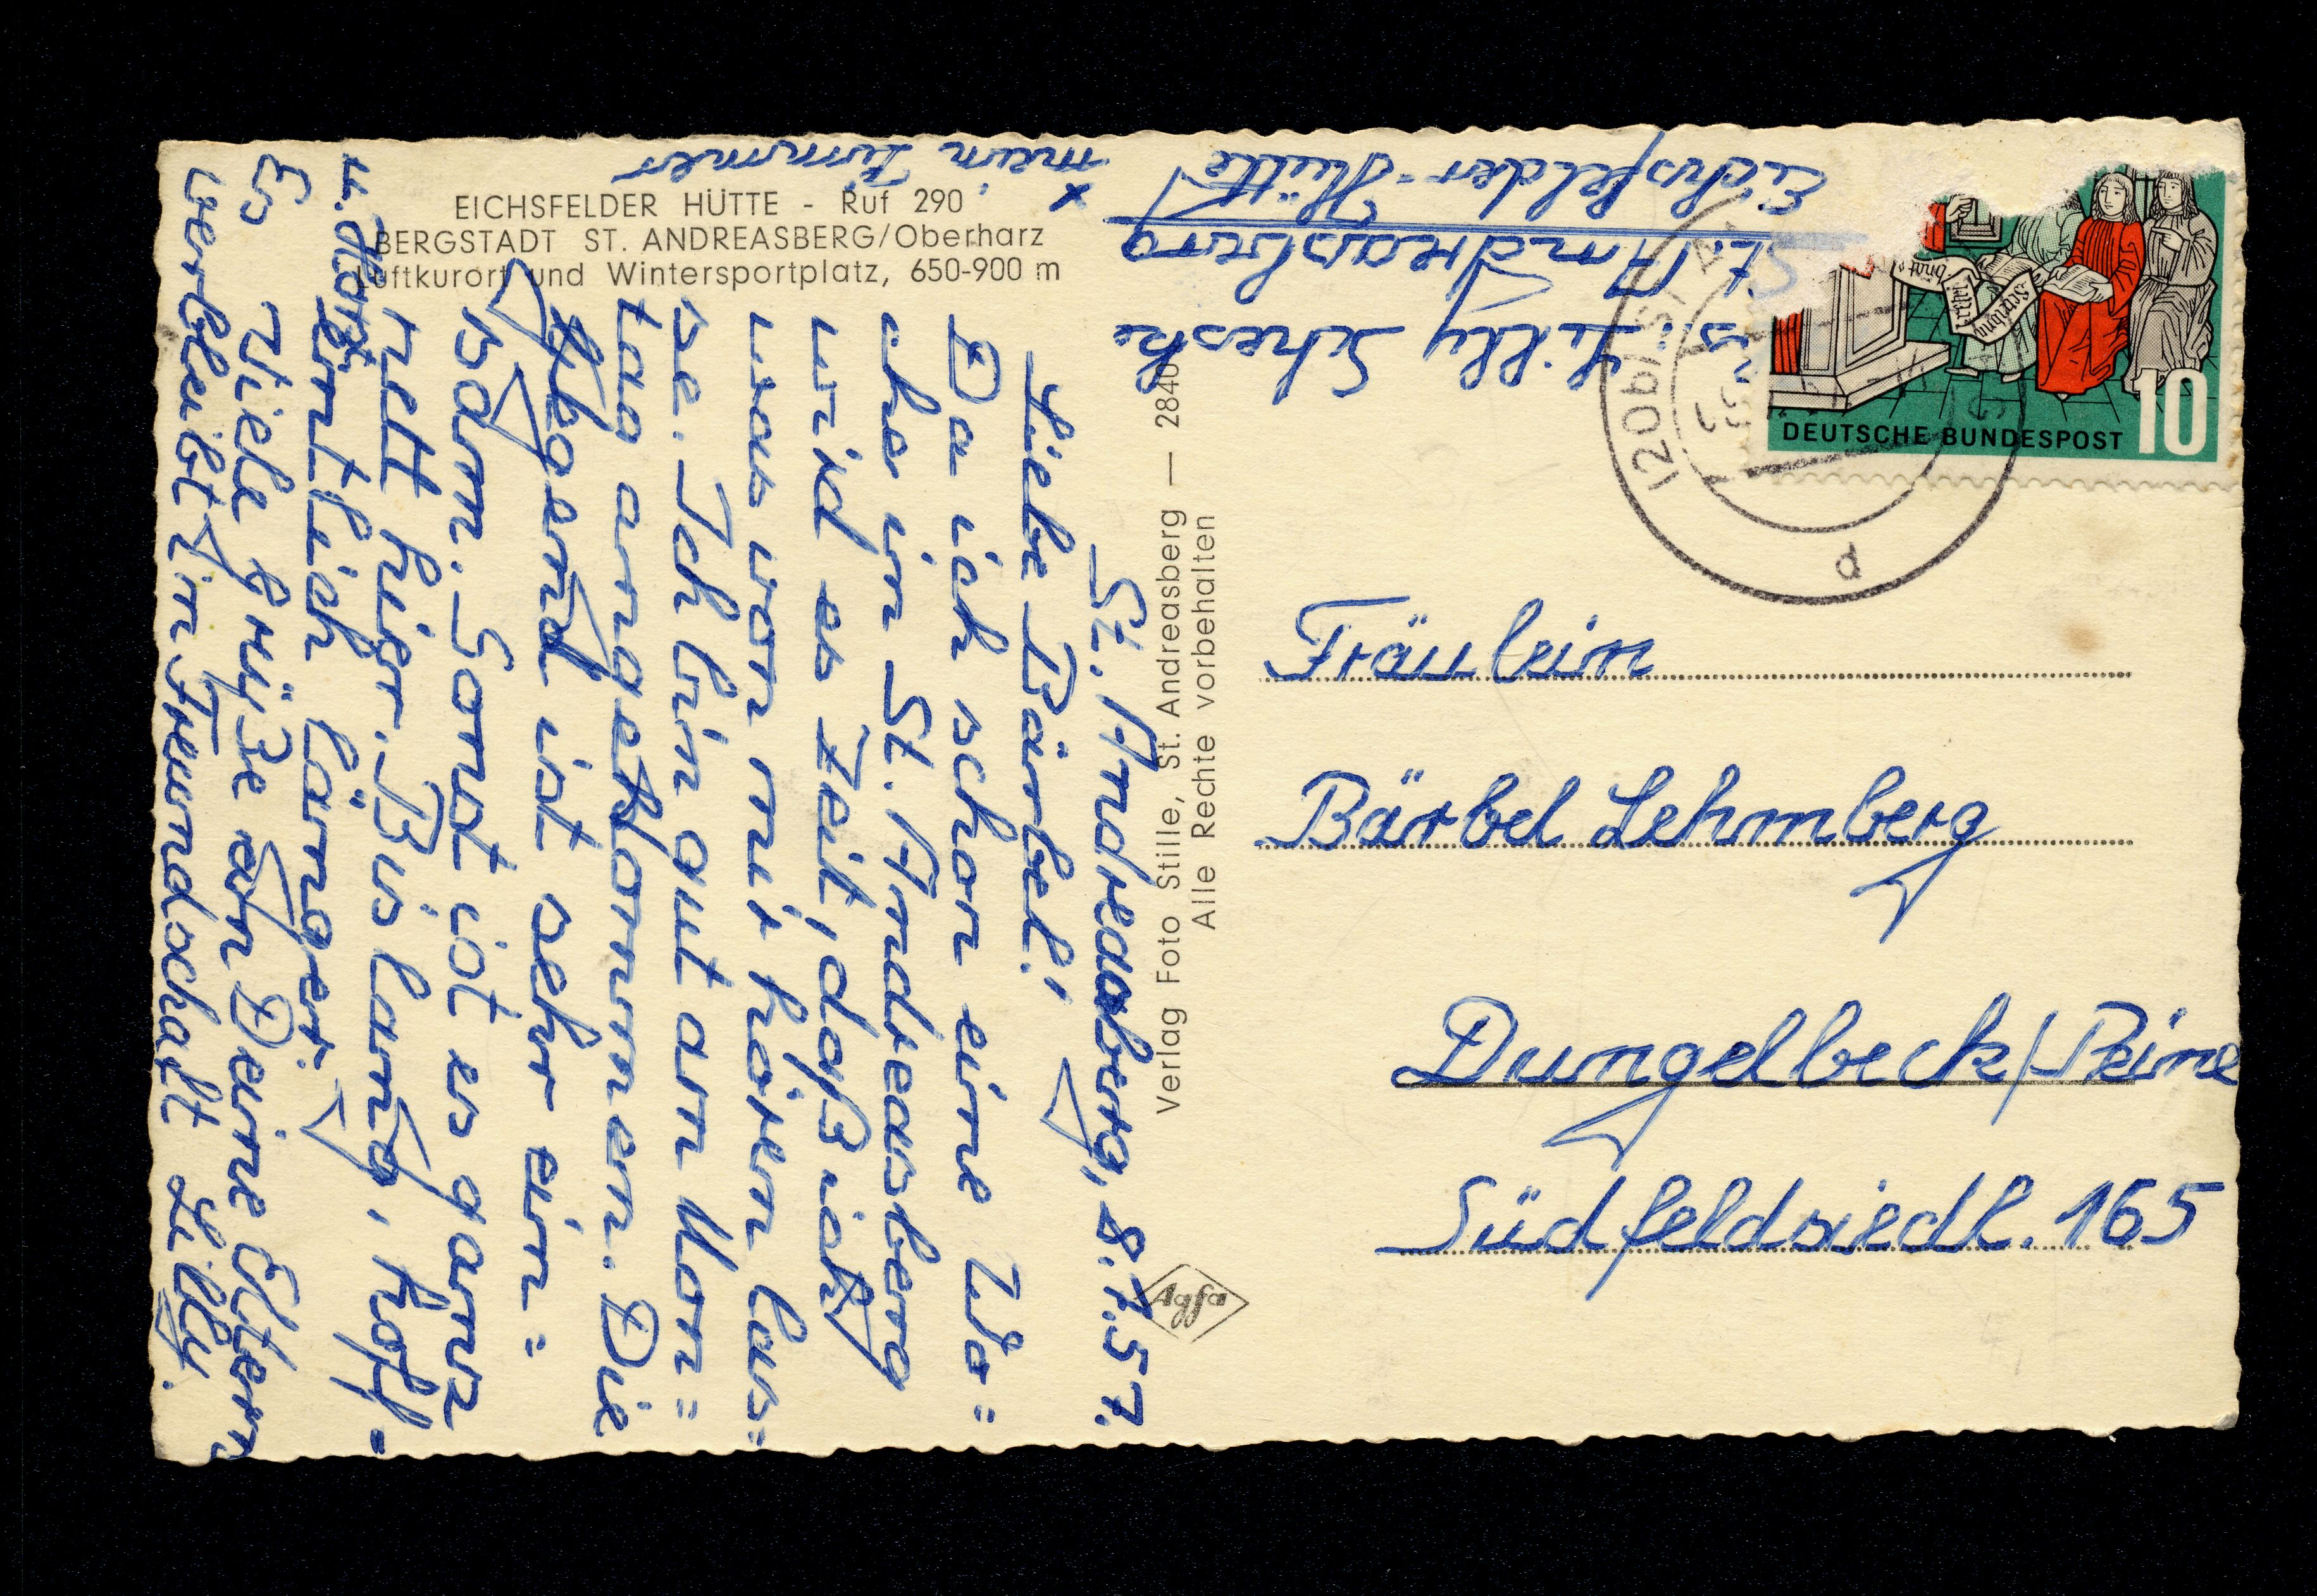 EICHSFELDER HÜTTE - Ruf 290
BERGSTADT ST. ANDREASBERG/Oberharz
Luftkurort und Wintersportplatz, 650-900 m
x mein Zimmer
St. Andreasberg, 8.7.57.
Liebe Bärbel!
Da ich schon eine Wo=
che in St. Andreasberg
wird es Zeit, daß ich
was von mir hören las=
se. Ich bin gut am Mon=
tag angekommen. Die
Gegend ist sehr ein=
sam. Sonst ist es ganz
nett hier. Bislang, hoff=
entlich länger.
u. Horst
Viele Grüße an Deine Eltern
Es verbleibt in Freundschaft Lilly.
Verlag Foto Stille, St. Andreasberg — 2840
Alle Rechte vorbehalten
Agfa
Lilly Scheske
St. Andreasberg
Eichsfelder-Hütte
(20b) ST
d
DEUTSCHE BUNDESPOST
10
Fräulein
Bärbel Lehmberg
Dungelbeck/Peine
Südfeldsiedl. 165